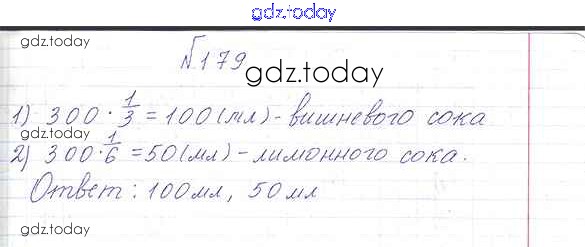 gdz.today
gdz.today
№179
gdz.today
1) 300 · 1/3 = 100 (мл) - вишневого сока
gdz.today
2) 300 · 1/6 = 50 (мл) - лимонного сока.
Ответ: 100 мл, 50 мл
gdz.today